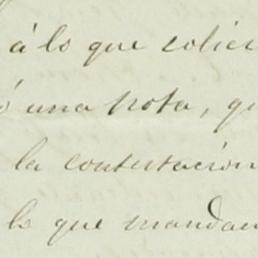 á lo que solici
ó una nota, qu
la contestación
le que mandan